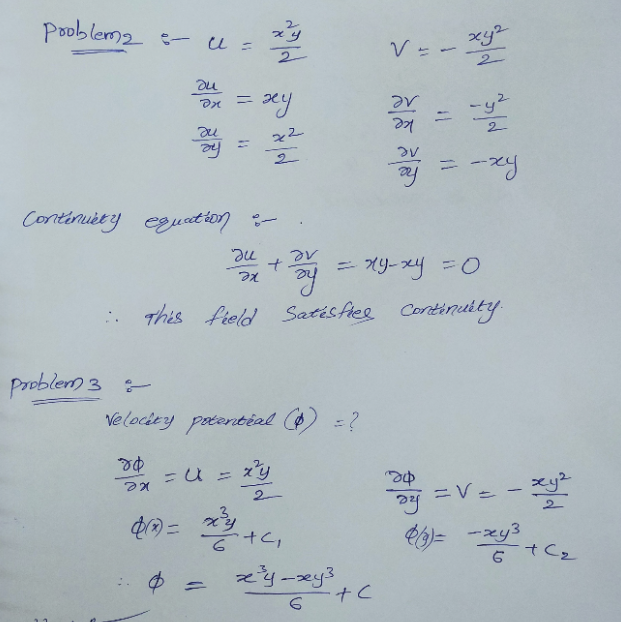 Problem2 :- u = x²y/2 v = - xy²/2
∂u/∂x = xy ∂v/∂x = -y²/2
∂u/∂y = x²/2 ∂v/∂y = -xy
Continuity equation :- .
∂u/∂x + ∂v/∂y = xy-xy = 0
∴ This field Satisfies Continuity.
Problem3 :-
Velocity potential (ϕ) = ?
∂ϕ/∂x = u = x²y/2 ∂ϕ/∂y = v = - xy²/2
ϕ(x) = x³y/6 + C₁ ϕ(y) = -xy³/6 + C₂
∴ ϕ = x³y-xy³/6 + C